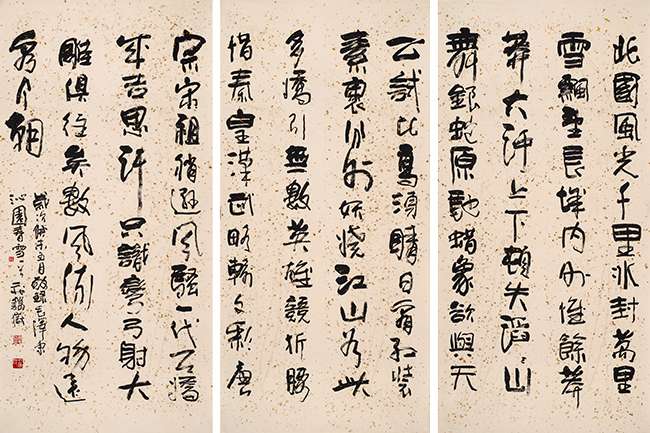 北國風光千里冰封萬里
雪飄望長城內外惟餘莽
莽大河上下頓失滔滔山
舞銀蛇原馳蠟象欲與天
公試比高須晴日看紅裝
素裹分外妖嬈江山如此
多嬌引無數英雄競折腰
惜秦皇漢武略輸文彩唐
宗宋祖稍遜風騷一代天驕
成吉思汗只識彎弓射大
雕俱往矣數風流人物還
看今朝
歲次癸未五月敬錄毛澤東
沁園春雪